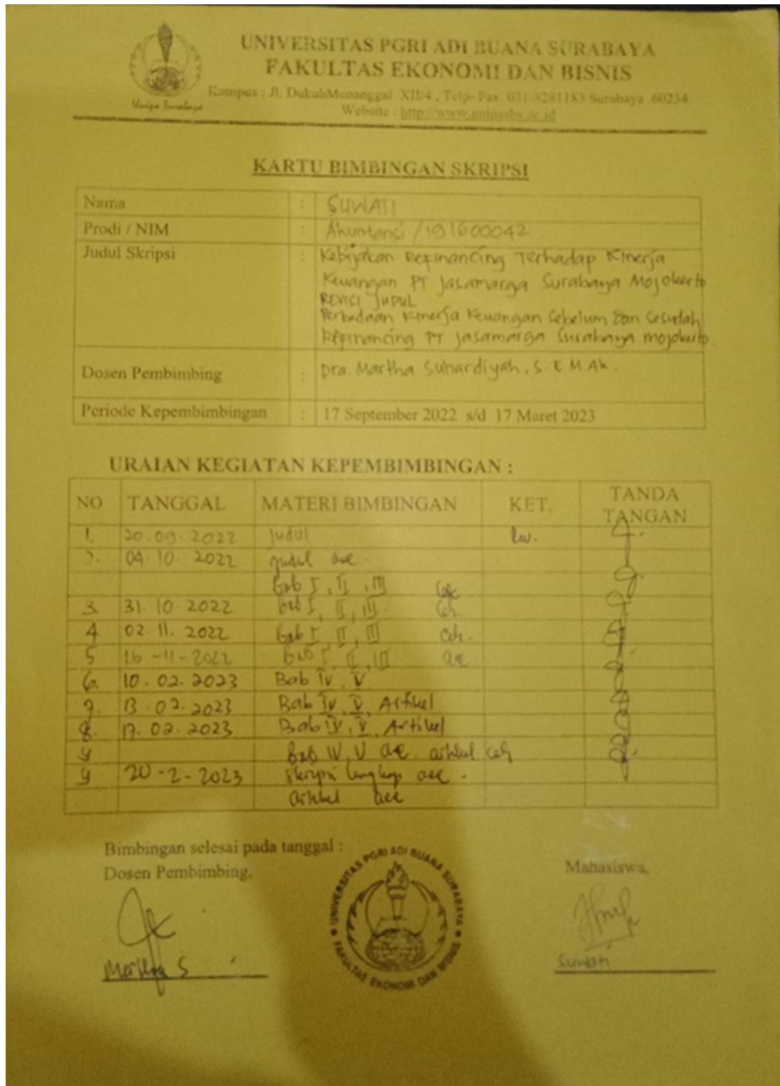 UNIVERSITAS PGRI ADI BUANA SURABAYA
FAKULTAS EKONOMI DAN BISNIS
Kampus : Jl. DukuhMenanggal XII/4 , Telp- Fax. 031-8281183 Surabaya 60234
Website : http://www.unipasby.ac.id
Unipa Surabaya
KARTU BIMBINGAN SKRIPSI
Nama : SUWATI
Prodi / NIM : Akuntansi / 191600042
Judul Skripsi : Kebijakan Refinancing Terhadap Kinerja
Keuangan PT Jasamarga Surabaya Mojokerto
REVISI JUDUL
Perbedaan Kinerja Keuangan Sebelum Dan Sesudah
Refinancing PT Jasamarga Surabaya Mojokerto.
Dosen Pembimbing : Dra. Martha Suhardiyah, S.E M.Ak.
Periode Kepembimbingan : 17 September 2022 s/d 17 Maret 2023
URAIAN KEGIATAN KEPEMBIMBINGAN :
NO TANGGAL MATERI BIMBINGAN KET. TANDA TANGAN
1. 20.09.2022 Judul
2. 04.10.2022 Judul acc.
Bab I, II, III
3. 31.10.2022 Bab I, II, III
4 02.11.2022 Bab I, II, III
5 16-11-2022 Bab I, II, III acc
6. 10.02.2023 Bab IV, V
7. 13.02.2023 Bab IV, V, Artikel
8. 17.02.2023 Bab IV, V, Artikel
9 Bab IV, V acc artikel
9 20-2-2023 Skripsi lengkap acc.
artikel acc
Bimbingan selesai pada tanggal :
Dosen Pembimbing,
Mahasiswa,
UNIVERSITAS PGRI ADI BUANA SURABAYA
FAKULTAS EKONOMI DAN BISNIS
Martha S
Suwati